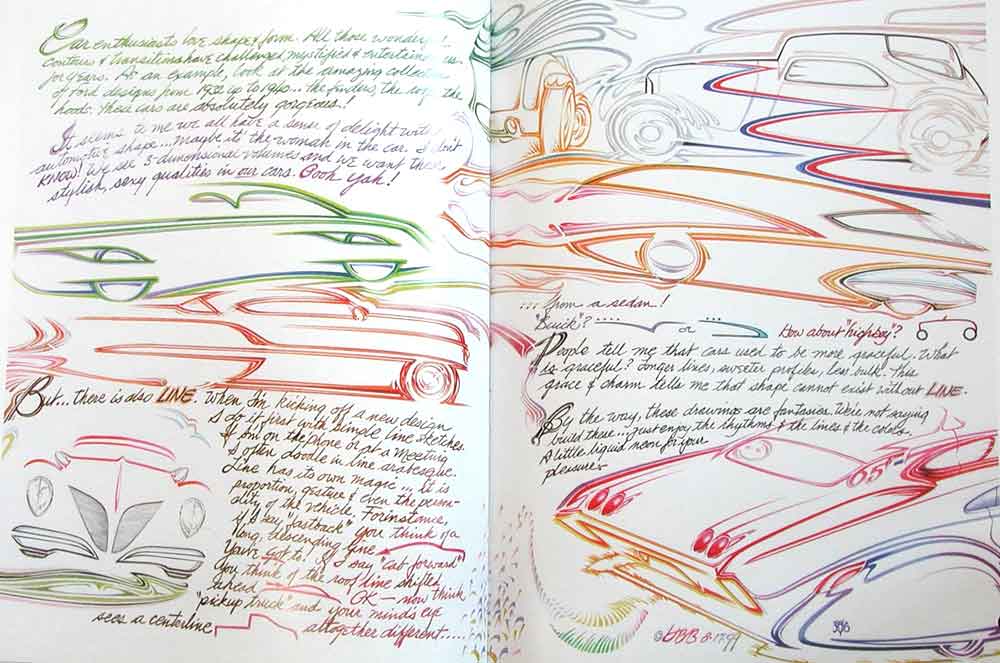 Car enthusiasts love shape & form. All those wonderful
contours & transitions have challenged, mystified & entertained us
for years. As an example, look at the amazing collection
of Ford designs from 1932 up to 1940... the fenders, the tops, the
hoods. These cars are absolutely gorgeous.!
It seems to me we all have a sense of delight with
automotive shape... maybe it's the woman in the car. I don't
KNOW! We see 3-dimensional volumes and we want these
stylish, sexy qualities in our cars. Oooh Yah!
But... there is also LINE. When I'm kicking off a new design
I do it first with simple line sketches.
If I'm on the phone or at a meeting
I often doodle in line arabesque.
Line has its own magic... It is
proportion, gesture & even the person-
ality of the vehicle. For instance,
if I say "fastback" you think of a
long, descending line
You've got to! If I say "cab forward"
you think of the roof line shifted
ahead OK - now think
"pickup truck" and your mind's eye
sees a centerline altogether different....
... from a sedan!
"Buick"? .... or ... How about "highboy"?
People tell me that cars used to be more graceful. What
is graceful? Longer lines, sweeter profiles, less bulk. This
grace & charm tells me that shape cannot exist without LINE.
By the way, these drawings are fantasies. We're not saying
build these... just enjoy the rhythms & the lines & the colors.
A little liquid neon for your
pleasure.
65
© 8·17·99